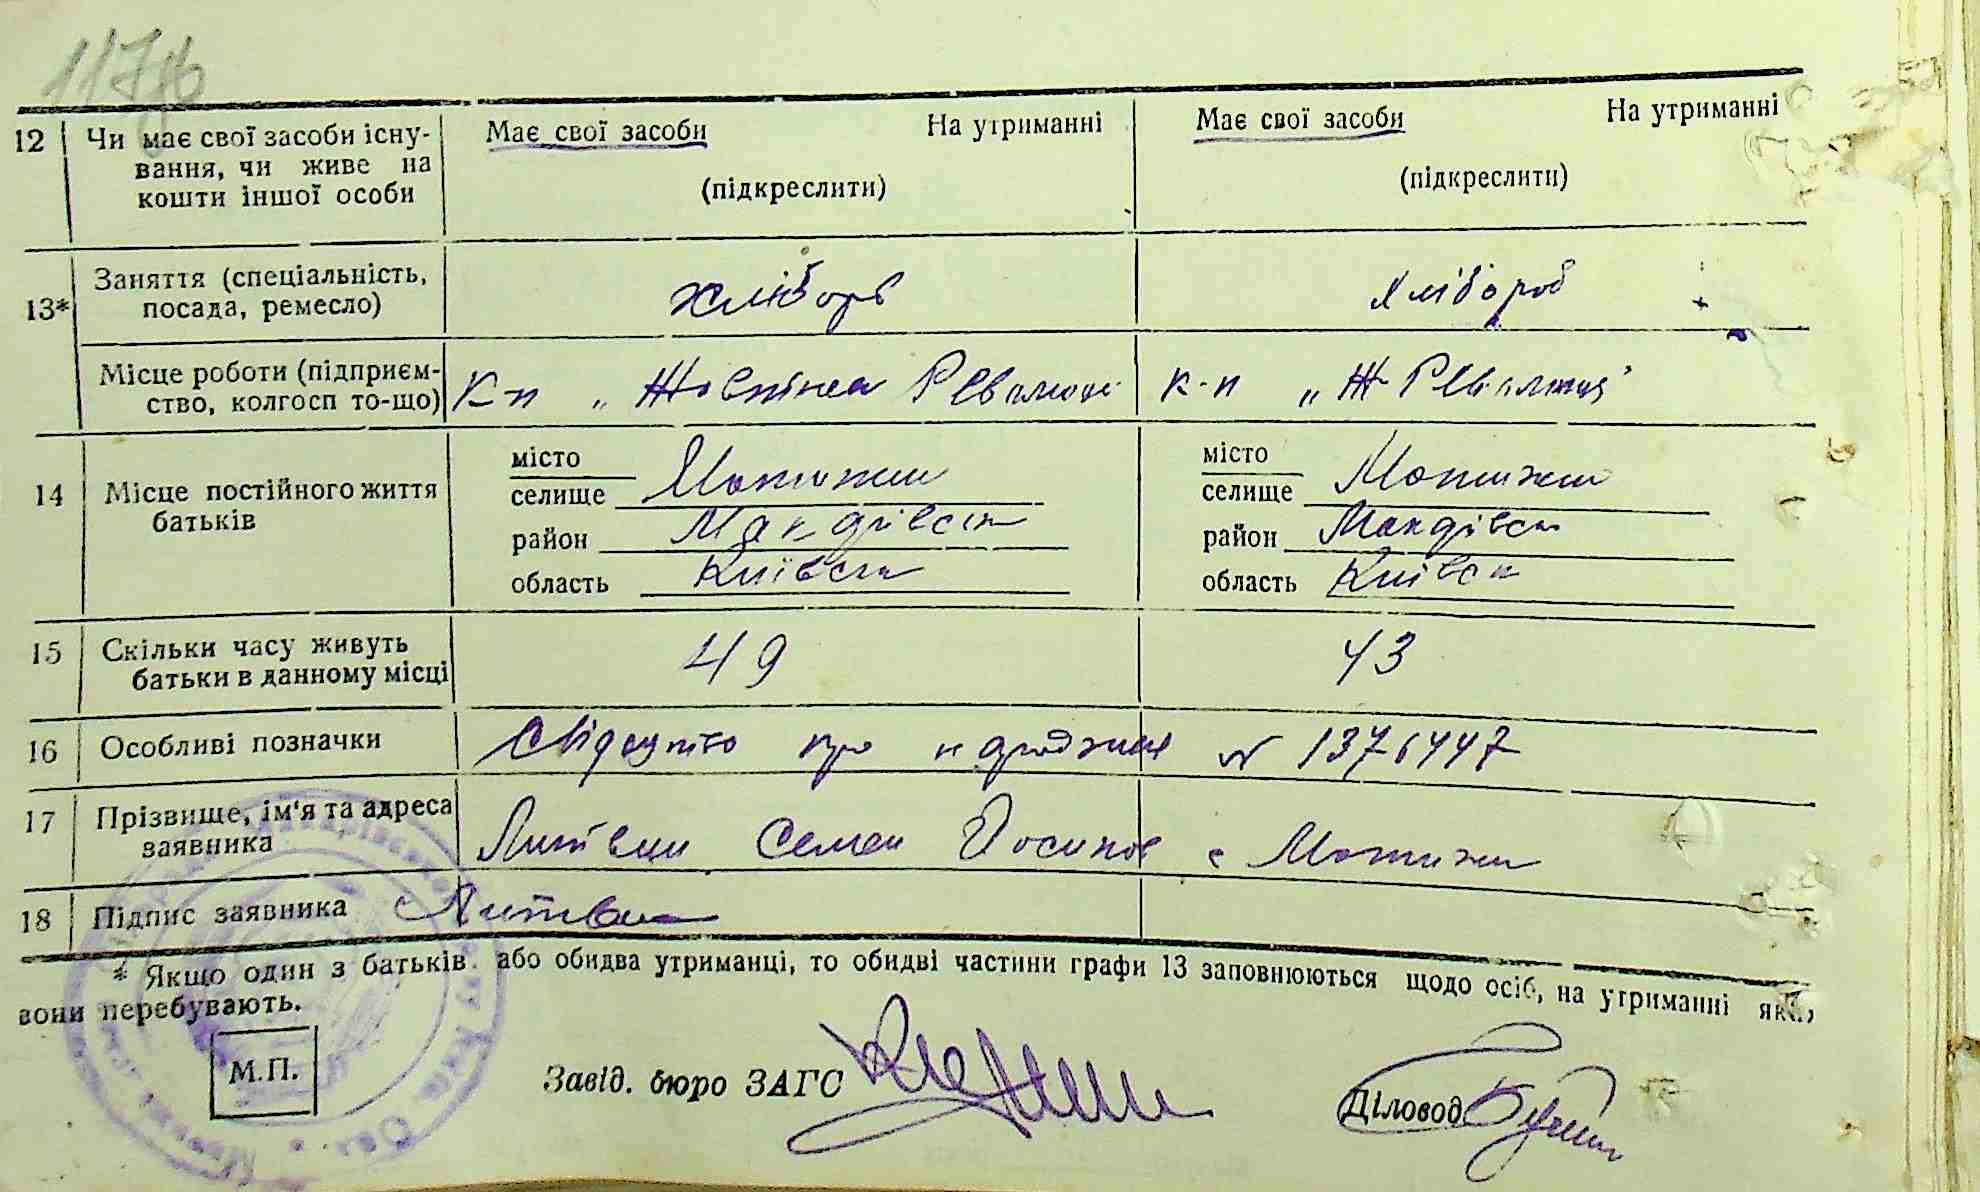 117зв
12 Чи має свої засоби існу- Має свої засоби На утриманні Має свої засоби На утриманні
вання, чи живе на
кошти іншої особи (підкреслити) (підкреслити)
13* Заняття (спеціальність,
посада, ремесло) хлібороб хлібороб
Місце роботи (підприєм-
ство, колгосп то-що) К-п „Жовтнева Революці К-п „Ж Революція"
14 Місце постійного життя
батьків
місто місто
селище Мотижин селище Мотижин
район Макарівськ район Макарівськ
область Київськ область Київськ
15 Скільки часу живуть
батьки в данному місці 49 43
16 Особливі позначки Свідоцтво про народження № 1376447
17 Прізвище, ім'я та адреса
заявника Литвин Семен Йосипов с Мотижин
18 Підпис заявника Литвин
* Якщо один з батьків або обидва утриманці, то обидві частини графи 13 заповнюються щодо осіб, на утриманні яких
вони перебувають.
М.П. Завід. бюро ЗАГС Діловод